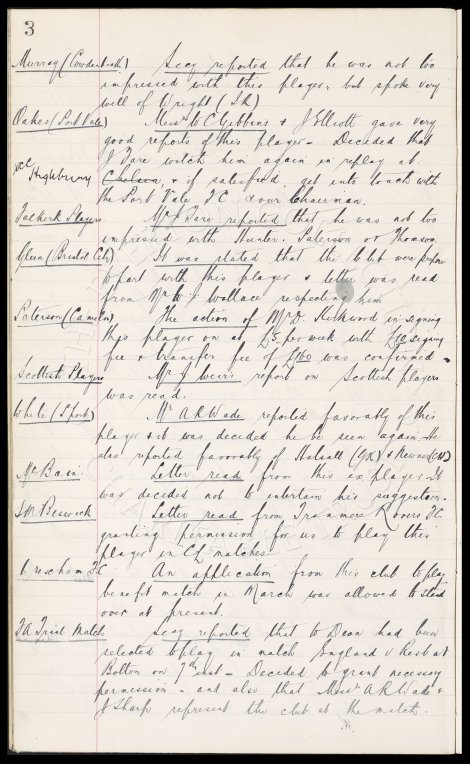 3
Murray (Cowdenbeath) Secy reported that he was not too
impressed with this player, but spoke very
well of Wright (IR)
Oakes (Port Vale) Messrs W C Gibbins & J Elliott gave very
good reports of this player – Decided that
J Fare watch him again in replay at
at Highbury Chelsea, & if satisfied, get into touch with
the Port Vale FC & our Chairman.
Falkirk Players Mr J Fare reported that he was not too
impressed with Hunter. Paterson or Thomson
Glen (Bristol City) It was stated that the club were prepared
to part with this player & letter was read
from Mr Wallace respecting him
Paterson (Camelon) The action of Mr D. Kirkwood in signing
this player on at £5 per week with £10 signing
fee & transfer fee of £160 was confirmed.
Scottish Players Mr J Weir's report on Scottish players
was read.
While (S'port) Mr A R Wade reported favorably of this
player & it was decided he be seen again. He
also reported favorably of Halsall (GK) & Newnes (CH)
McBain. Letter read from this ex player. It
was decided not to entertain his suggestion.
J M Beswick Letter read from Tranmere Rovers FC.
granting permission for us to play this
player in CL matches.
FC An application from this club to play
benefit match in March was allowed to stand
over at present.
FA Trial Match Secy reported that W Dean had been
selected to play in match England v Rest at
Bolton on 7th inst – Decided to grant necessary
permission – and also that Messrs A R Wade &
J Sharp represent the club at the match.